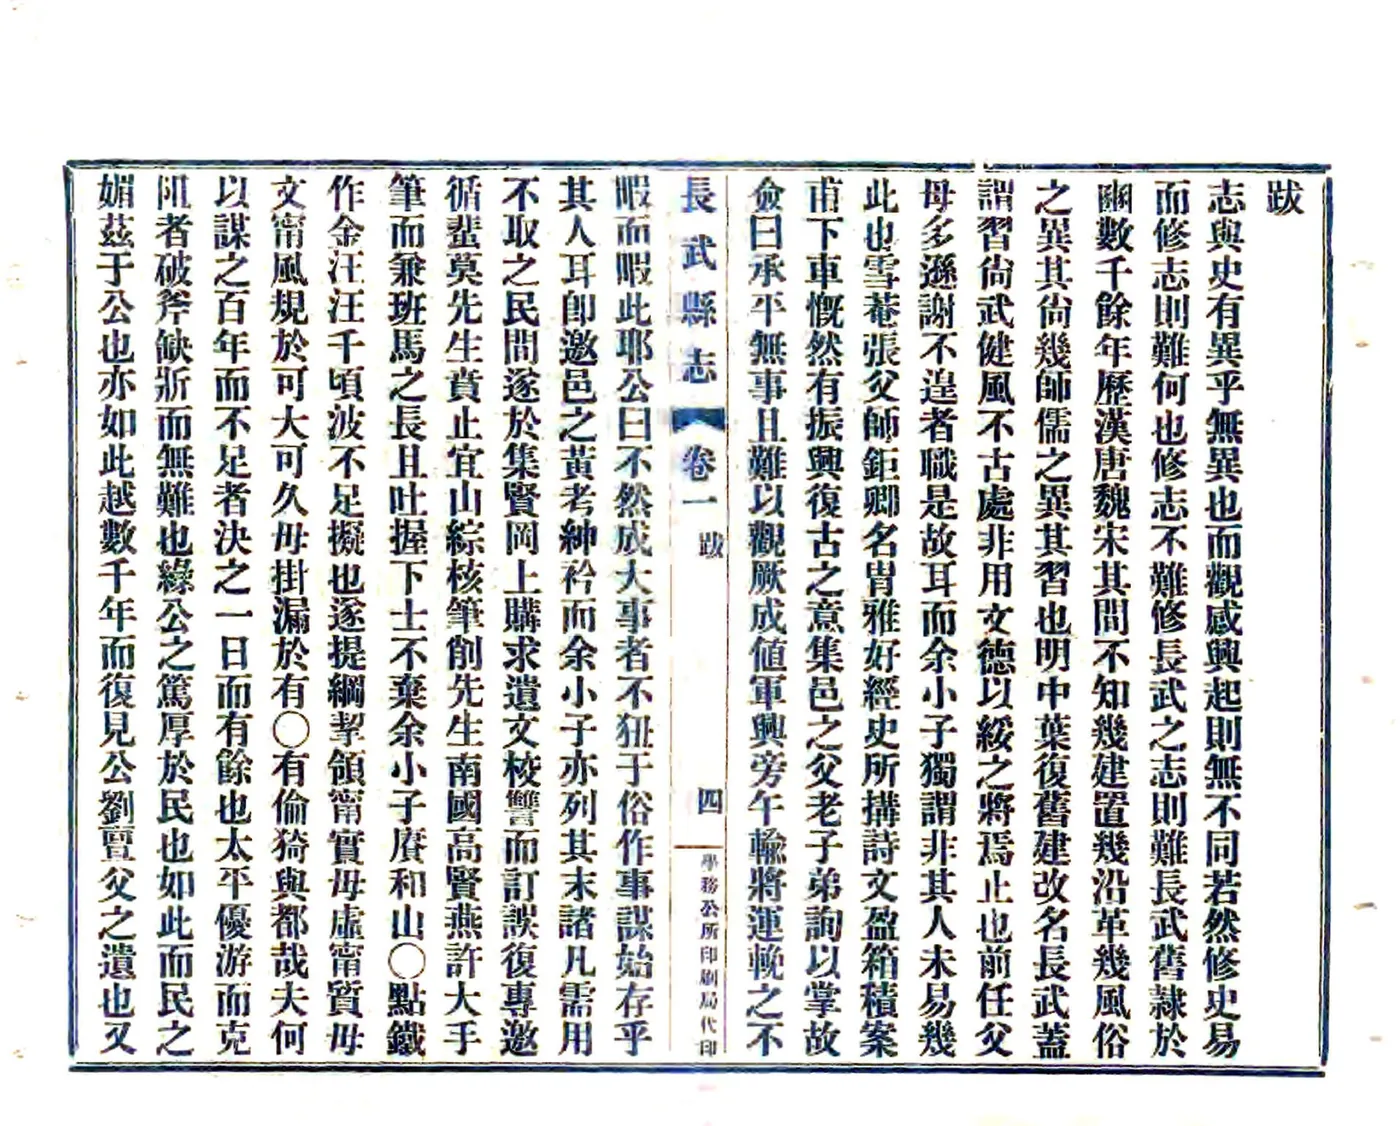 跋
志與史有異乎無異也而觀感興起則無不同若然修史易
而修志則難何也修志不難修長武之志則難長武舊隷於
豳數千餘年歷漢唐魏宋其間不知幾建置幾沿革幾風俗
之異其尙幾師儒之異其習也明中葉復舊建改名長武蓋
謂習尙武健風不古處非用文德以綏之將焉止也前任父
母多遜謝不遑者職是故耳而余小子獨謂非其人未易幾
此也雪菴張父師鉅卿名胄雅好經史所搆詩文盈箱積案
甫下車慨然有振興復古之意集邑之父老子弟詢以掌故
僉曰承平無事且難以觀厥成値軍興旁午輸將運輓之不
長武縣志
卷一
跋
四
學務公所印刷局代印
暇而暇此耶公曰不然成大事者不狃于俗作事謀始存乎
其人耳卽邀邑之黃考紳衿而余小子亦列其末諸凡需用
不取之民間遂於集賢岡上購求遺文校讐而訂誤復專邀
循蜚莫先生賁止宜山綜核筆削先生南國高賢燕許大手
筆而兼班馬之長且吐握下士不棄余小子賡和山〇點鐵
作金汪汪千頃波不足擬也遂提綱挈領甯實毋虛甯質毋
文甯風規於可大可久毋掛漏於有〇有倫猗與都哉夫何
以謀之百年而不足者決之一日而有餘也太平優游而克
阻者破斧缺斨而無難也緣公之篤厚於民也如此而民之
媚茲于公也亦如此越數千年而復見公劉亶父之遺也又